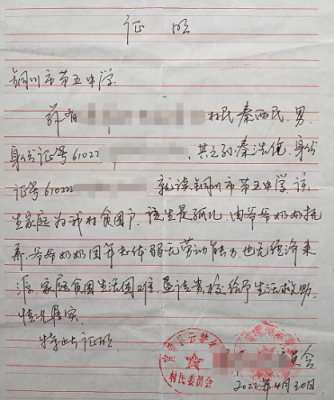 证明
铜川市第五中学
兹有 村民秦西民,男,
身份证号61022 ,其之孙秦浩伦,身份
证号61022 就读铜川市第五中学,该
生家庭为我村贫困户,该生是孤儿,由爷爷奶奶抚
养,爷爷奶奶因年老体弱无劳动能力,也无经济来
源,家庭贫困生活困难,恳请贵校给予生活救助,
情况属实
特此证明
员会
村民委员会
2022年4月30日